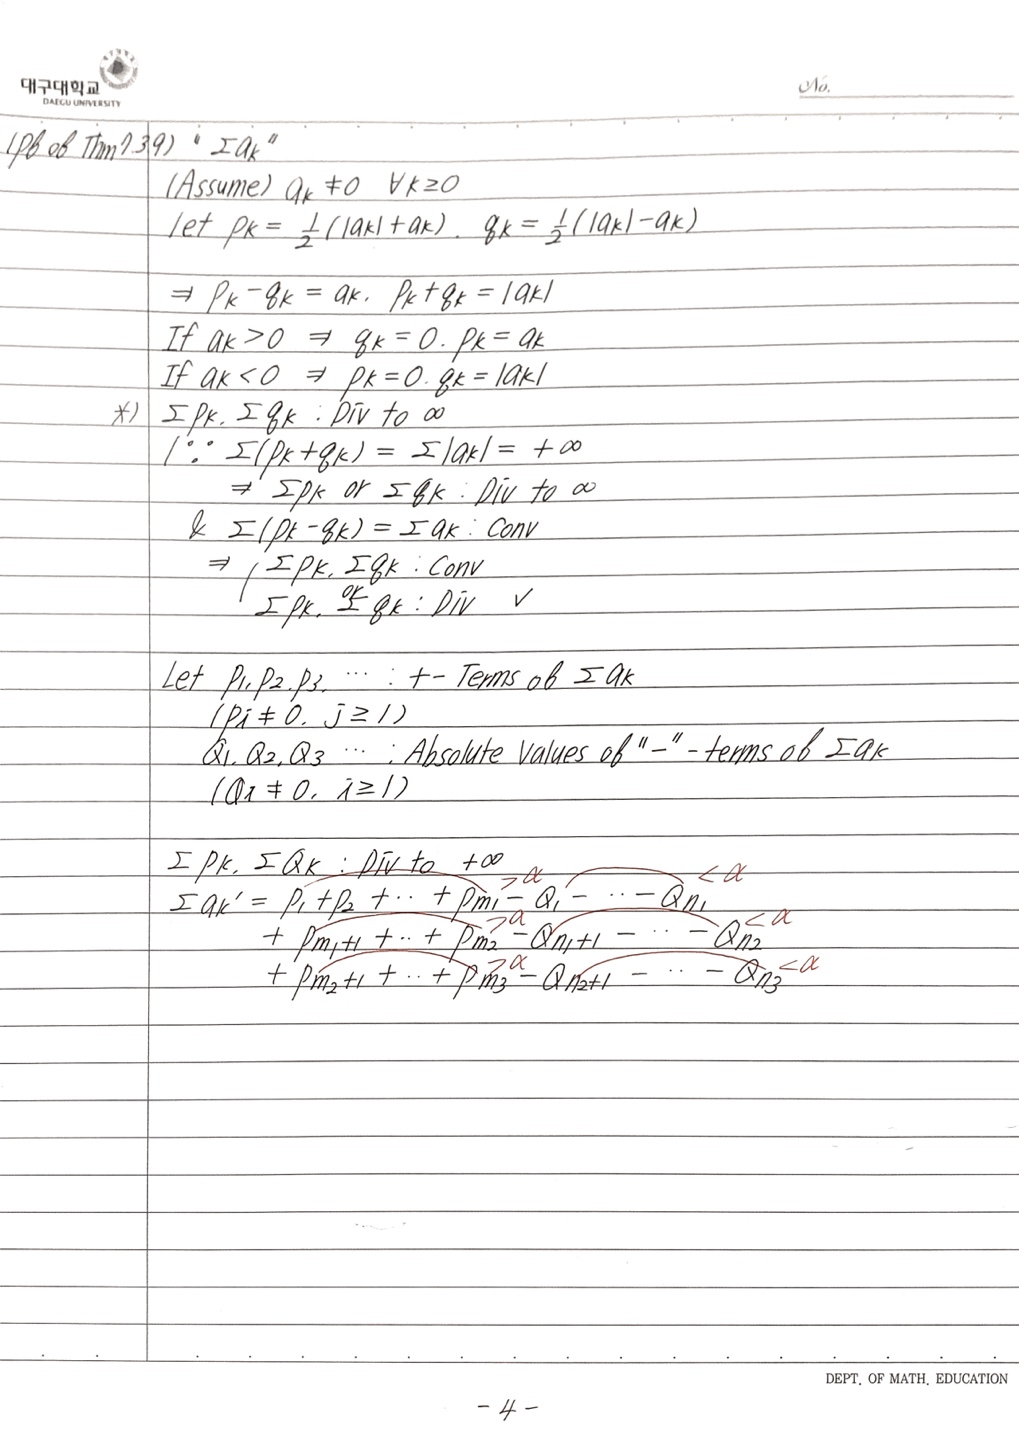 대구대학교
DAEGU UNIVERSITY
No.
(pf of Thm 7.39) " Σak"
(Assume) ak ≠ 0 ∀k ≥ 0
let pk = 1/2 (|ak| + ak). qk = 1/2 (|ak| - ak)
⇒ pk - qk = ak. pk + qk = |ak|
If ak > 0 ⇒ qk = 0. pk = ak
If ak < 0 ⇒ pk = 0. qk = |ak|
*) Σpk. Σqk : Div to ∞
(∵ Σ(pk + qk) = Σ|ak| = +∞
⇒ Σpk or Σqk : Div to ∞
& Σ(pk - qk) = Σak : Conv
⇒ ( Σpk, Σqk : Conv
Σpk. or Σqk : Div ✓
Let p1, p2, p3, ⋯ : +- Terms of Σak
(pj ≠ 0. j ≥ 1)
Q1, Q2, Q3 ⋯ : Absolute Values of "-" - terms of Σak
(Qi ≠ 0. i ≥ 1)
Σpk. ΣQk : Div to +∞
Σak' = p1 + p2 + ⋯ + pm1 > α - Q1 - ⋯ - Qn1 < α
+ pm1+1 + ⋯ + pm2 > α - Qn1+1 - ⋯ - Qn2 < α
+ pm2+1 + ⋯ + pm3 > α - Qn2+1 - ⋯ - Qn3 < α
DEPT. OF MATH. EDUCATION
- 4 -